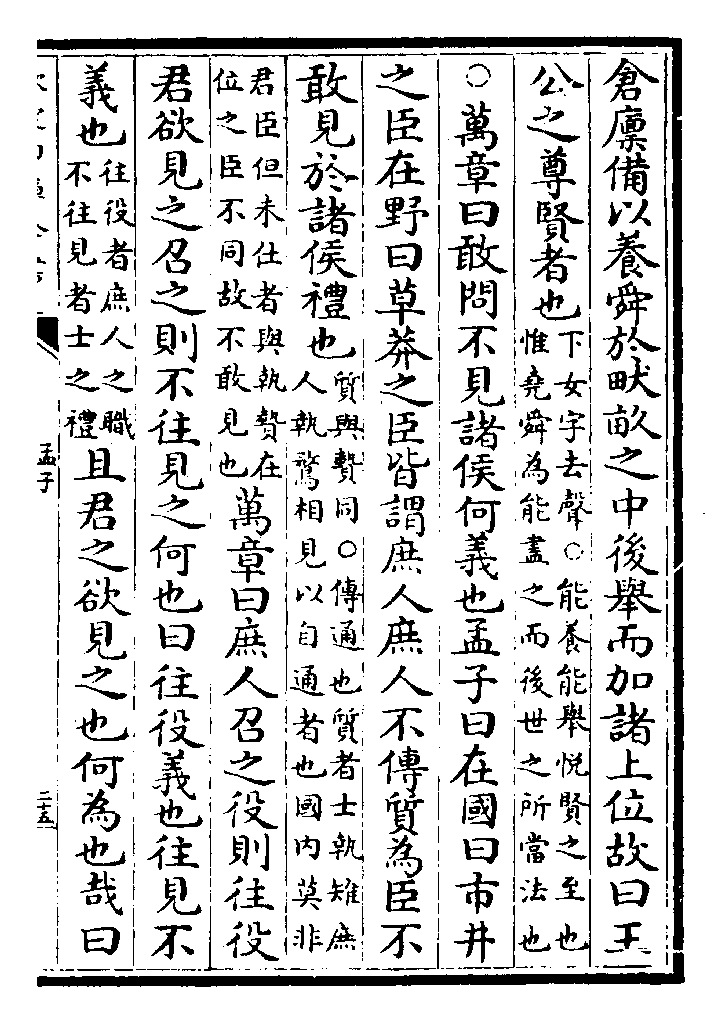 倉廩備以養舜於畎畝之中後舉而加諸上位故曰王
公之尊賢者也
下女字去聲○能養能舉悅賢之至也
惟堯舜為能盡之而後世之所當法也
○萬章曰敢問不見諸侯何義也孟子曰在國曰市井
之臣在野曰草莽之臣皆謂庶人庶人不傳質為臣不
敢見於諸侯禮也
質與贄同○傳通也質者士執雉庶
人執鶩相見以自通者也國內莫非
君臣但未仕者與執贄在
位之臣不同故不敢見也
萬章曰庶人召之役則往役
君欲見之召之則不往見之何也曰往役義也往見不
義也
往役者庶人之職
不往見者士之禮
且君之欲見之也何為也哉曰
孟子
二十五